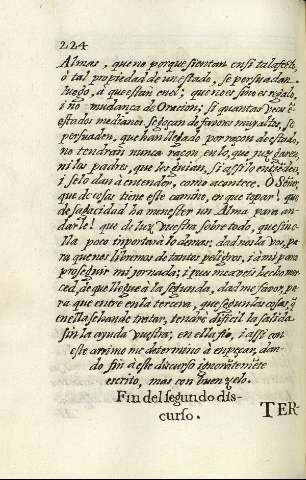 224
Almas, que no porque sientan en si tal afecto,
ò tal propiedad de un estado, se persuadan
luego, à que estan en el; que no es sino es regalo,
i no mudança de Oracion; si quantas veces è
estados medianos se goçan de favores mui altos, se
persuaden, que han llegado por raçon de estado,
no tendran nunca raçon en lo, que juzgaren,
ni los padres, que les guian, si assi lo entienden,
i se lo dan à entender, como acontece. O Señor,
que de cosas tiene este camino, en que topar! que
de sagacidad ha menester un Alma para an-
darle! que de luz vuestra sobre todo, que sin e-
lla poco inportarà lo demas; dadnosla vos, pa-
ra que nos libremos de tantos peligros, i à mi para
proseguir mi jornada; i pues me aveis hecho mer-
ced, de que llegue à la segunda, dadme favor, pa-
ra que entre en la tercera, que segun las cosas, q
en ella se han de tratar, tendrè dificil la salida
sin la ayuda vuestra; en ella fio, i assi con
este animo me determino à enpeçar, dan-
do fin à este discurso ignorãtemẽte
escrito, mas con buen zelo.
Fin del segundo dis-
curso.
TER-